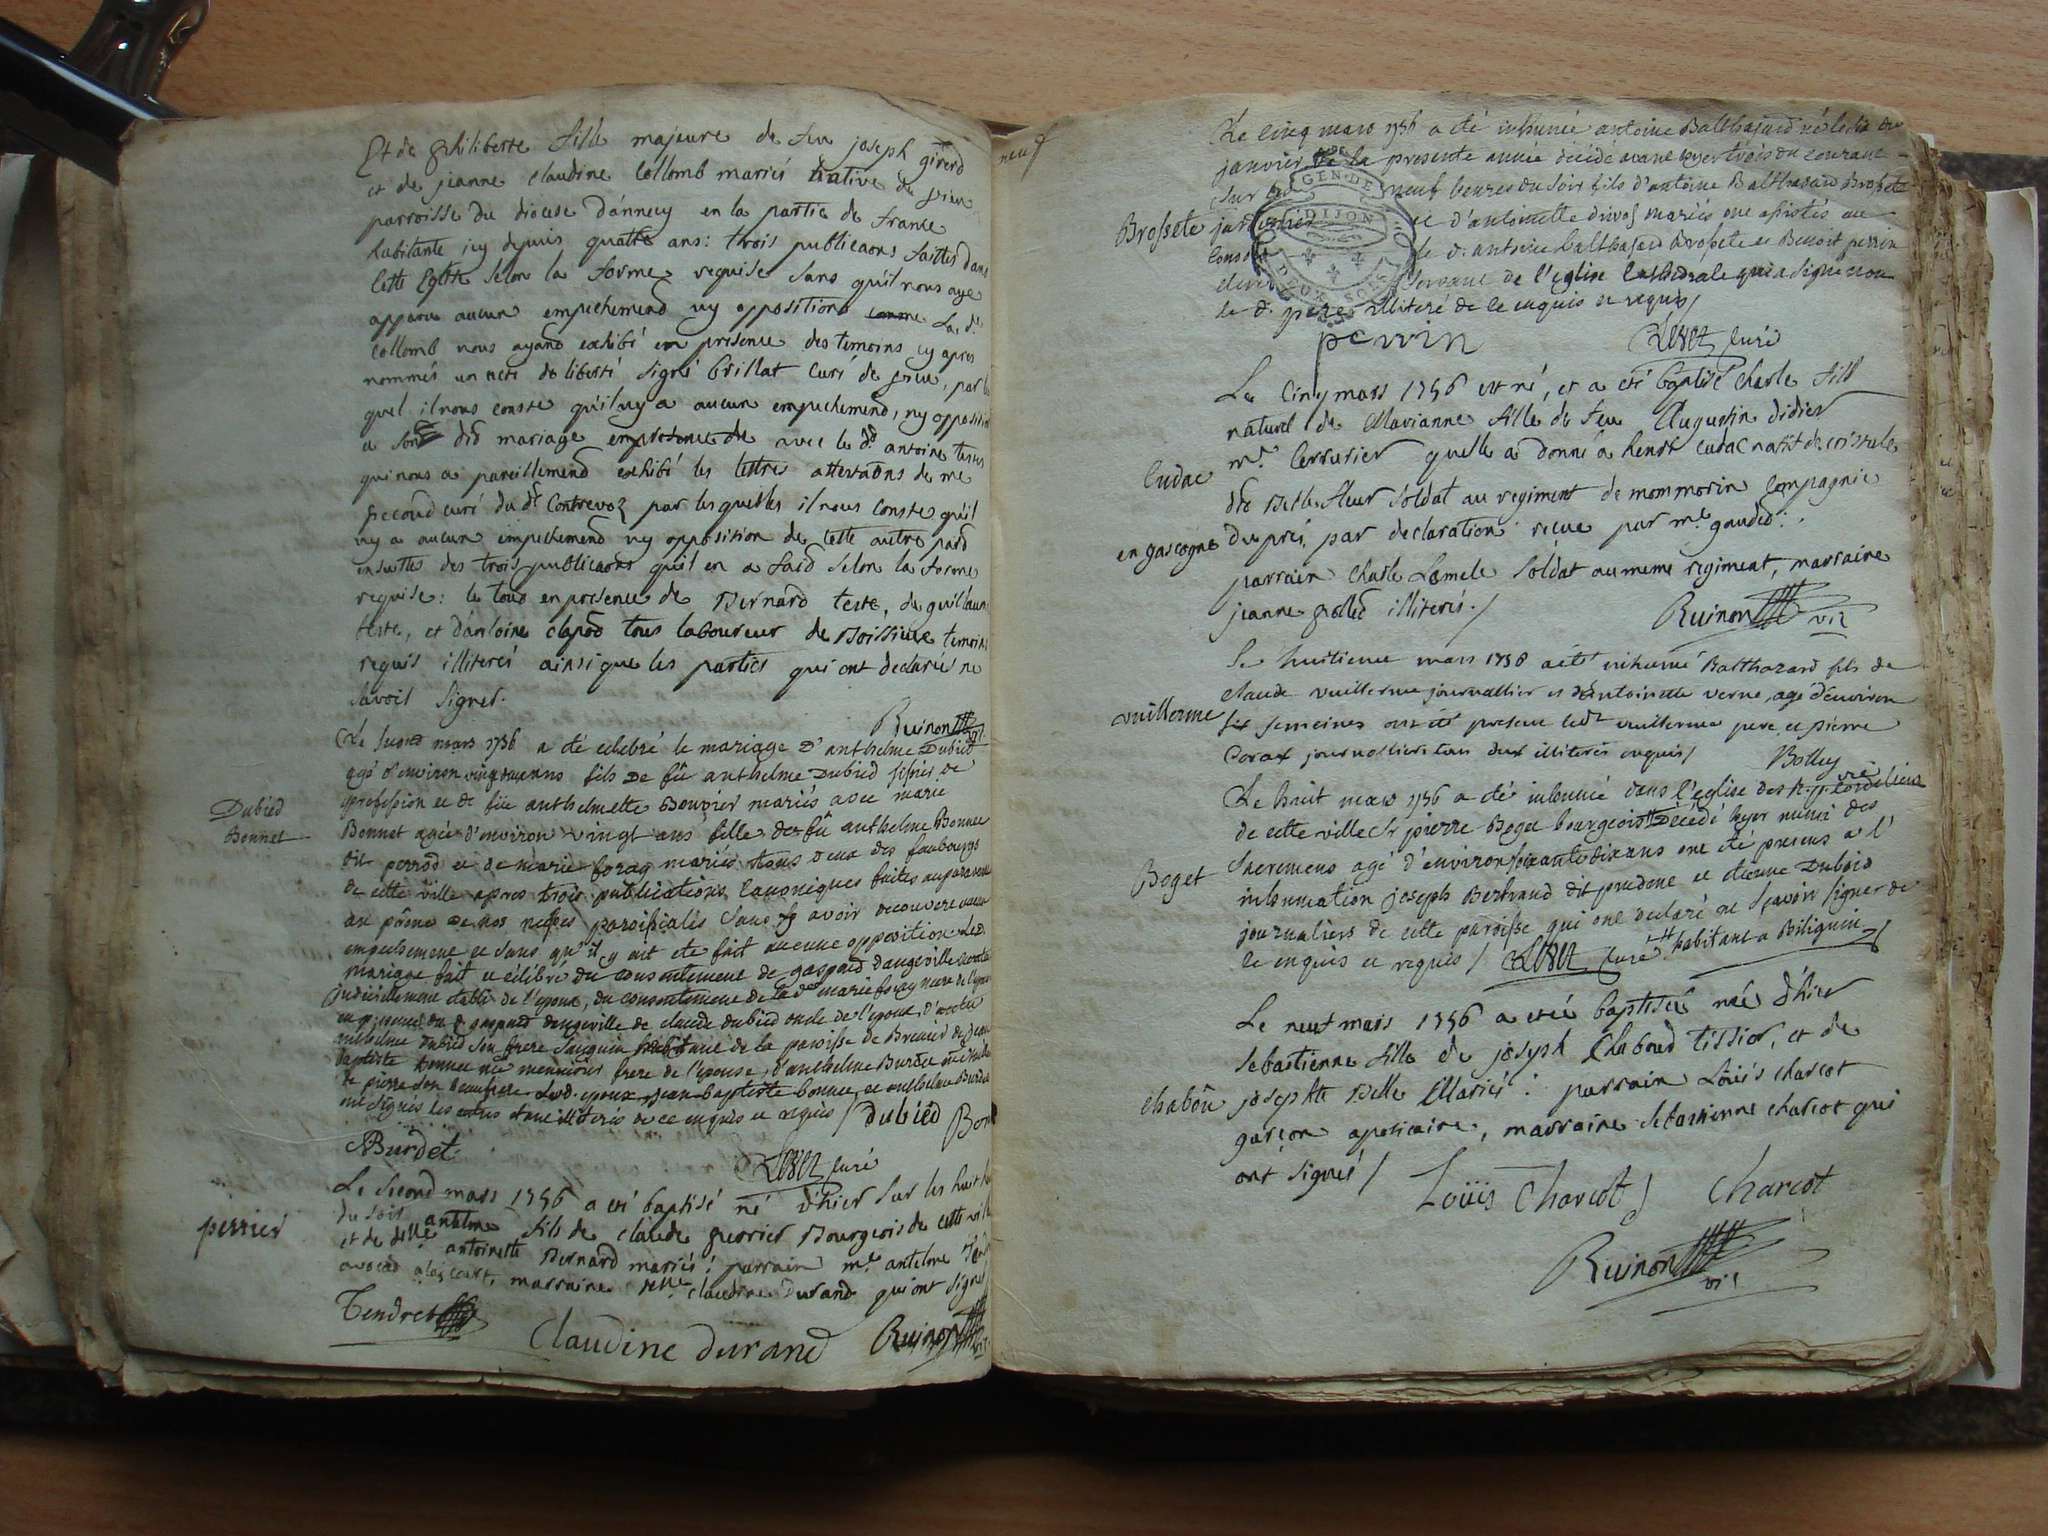 Et de philiberte fille majeure de feu joseph girerd
et de jeanne claudine Collomb mariés native de
parroisse du diocese d'annecy en la partie de france
habitante icy depuis quatre ans: trois publicaons faittes dans
cette Eglise selon la forme requise sans qu'il nous aye
apparu aucun empechemend ny opposition la d.e
collomb nous ayand exhibé en presence des temoins cy apres
nommés un acte de liberté signé brillat curé de
quel il nous conste qu'il n'y a aucun empechemend, ny opposition
a son dit mariage avec le d. antoine teste
qui nous a pareillemend exhibé les lettres attestaons de me
curé du d. Contrevoz par lesquelles il nous conste qu'il
n'y a aucun empechemend ny opposition de cette autre pard
ensuittes des trois publicaons qu'il en a faid selon la forme
requise: le tous en presence de Bernard teste, de guillaume
teste, et d'antoine clapod tous laboureur de Boissieue temoins
requis illiterés ainsi que les parties qui ont declarés ne
savoir signer.
Ruinon vic
Le second mars 1756 a été celebré le mariage d'anthelme Dubied
agé d'environ ans fils de fû anthelme Dubied de
profession et de fûe anthelmette Bouvier mariés avec marie
Dubied
Bonnet
Bonnet agée d'environ vingt ans fille de fû anthelme Bonnet
dit perrod et de marie foray mariés tous deux des faubourgs
de cette ville apres trois publications canoniques faites auparavant
au prône de nos messes paroissiales sans avoir decouvert aucun
empechement et sans qu'il y ait eté fait aucune opposition Led.
mariage fait et célébré du consentement de gaspard dangeville
judiciellement etabli de l'epoux, du consentement de lad. marie foray mere de l'epouse
en presence du d. gaspard dangeville de claude dubied oncle de l'epoux, d'
anthelme dubied son frere de la paroisse de Brenier de jean
baptiste bonnet frere de l'epouse, d'anthelme Burdet
de pierre son beaufrere Led. epoux jean baptiste bonnet et anthelme Burdet
signés les autres illiterés de ce enquis et requis / Dubied Bon
ABurdet
curé
perrier
Le second mars 1756 a eté baptisé né d'hier sur les huit
du soir antelme fils de claude perrier Bourgeois de cette ville
et de delle antoinette Bernard mariés: parrain m.e antelme
avocat a la cour, marraine delle claudine durand qui ont signés
Tendret
Claudine durand
Ruinon vic
neuf
Le cinq mars 1756 a été inhumé antoine Balthasard né le dix
janvier de la presente année décédé avant hyer trois du courant
sur neuf heures du soir fils d'antoine Balthasard Brossete
Brossete jardinier et d'antoinette mariés ont assistés au
le d. antoine balthasard Brossete et Benoit perrin
servant de l'eglise Cathedrale qui a signé non
le d. pere illiteré de ce enquis et requis /
GEN. DE
DIJON
DEUX SOLS
perrin
curé
Le cinq mars 1756 est né, et a eté baptisé charle fils
naturel de Marianne fille de feu Augustin didier
m.e serrurier quelle a donné a
Cudac
dit Belle fleur soldat au regiment de mommorin compagnie
en gascogne
Dupré, par declaration reçue par m.e gaudet:
parrain charle Lamele soldat au meme regiment, marraine
jeanne illiterés. /
Ruinon vic
Le huitieme mars 1756 a été inhumé Balthazard fils de
claude vuillerme journallier et d'Antoinette verne, agé d'environ
vuillerme
six semeines ont été present ledt vuillerme pere et pierre
Corax journalliers tous deux illiterés enquis /
Bolley
vic
Le huit mars 1756 a été inhumé dans l'eglise des R.p. cordeliers
de cette ville Sr pierre Boget bourgeois Décédé hyer muni des
Boget
Sacremens agé d'environ soixante dix ans ont été presens a l'
inhumation joseph Bertrand dit prudent et etienne Dubois
journaliers de cette paroisse qui ont declaré ne sçavoir signer de
ce enquis et requis / curé habitant a Biliguin
Le neuf mars 1756 a eté baptisée née d'hier
sebastienne fille de joseph Chaboud tissier, et de
chabou
josephte Belle Mariés: parrain Loüis charcot
garçon apoticaire, marraine sebastienne charcot qui
ont signés /
Loüis Charcot
Charcot
Ruinon
vic